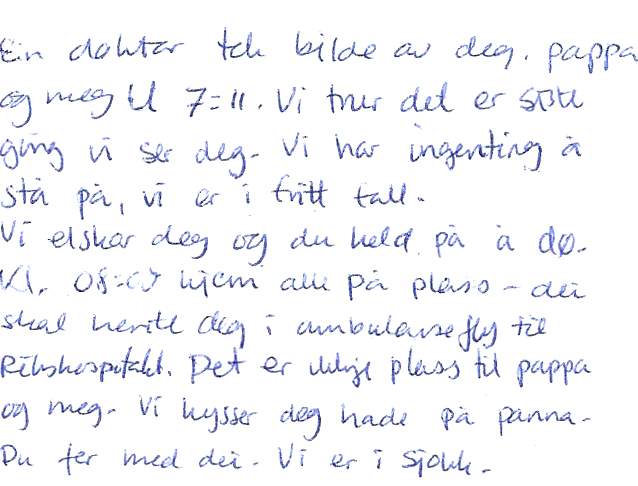 En doktor tek bilde av deg, pappa
og meg kl 7=11. Vi trur det er siste
gong vi ser deg. Vi har ingenting å
stå på, vi er i fritt fall.
Vi elskar deg og du held på å dø.
Kl. 08= kjem alle på plass - dei
skal hente deg i ambulansefly til
Rikshospitalet. Det er ikkje plass til pappa
og meg. Vi kysser deg hade på panna.
Du fer med dei. Vi er i sjokk.